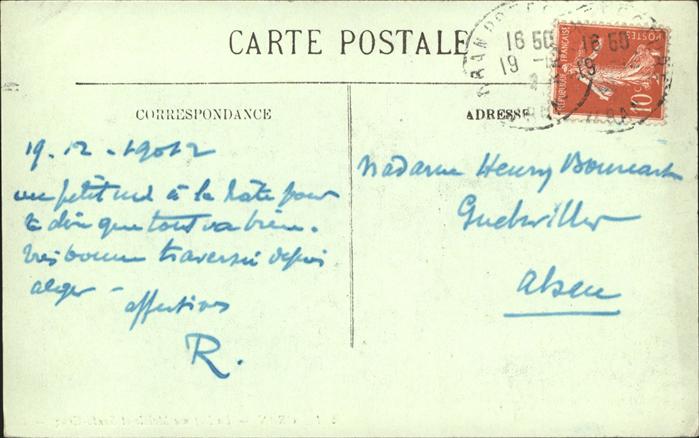 CARTE POSTALE
CORRESPONDANCE
ADRESSE
RÉPUBLIQUE FRANÇAISE
POSTES
10 c
16 50 16 50
19 19
ORAN
19-12-1912
un petit mot à la hâte pour
te dire que tout va bien.
très bonne traversée depuis
alger - affectives
R.
Madame Henry
Guebwiller
Alsace